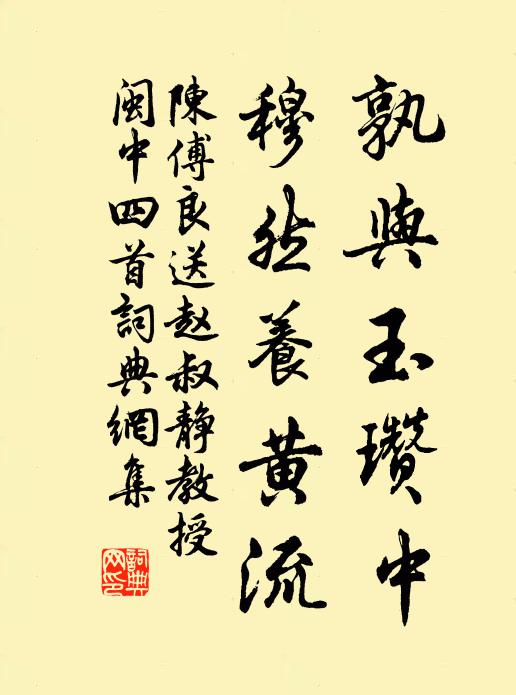 孰與玉瓚中
穆然養黄流
陳傅良送赵叔静教授
闽中四首詞典網集
詞典网印